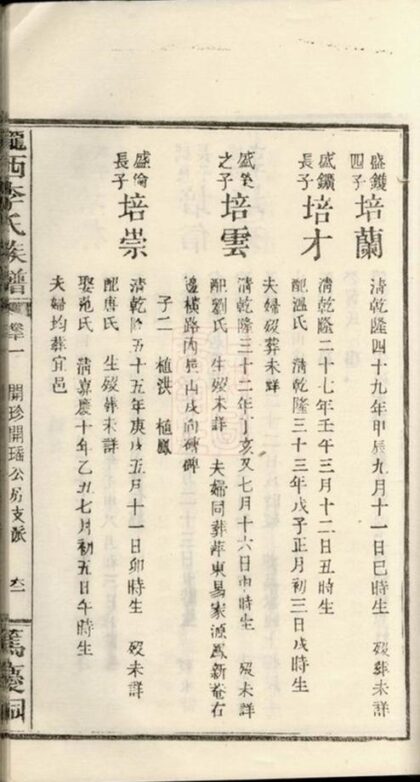 盛鑊四子 培蘭 清乾隆四十九年甲辰九月十一日巳時生 歿葬未詳
盛鑛長子 培才 清乾隆二十七年壬午三月十二日丑時生
配溫氏 清乾隆三十三年戊子正月初三日戌時生
夫婦歿葬未詳
之子 培雲 清乾隆三十二年丁亥又七月十六日申時生 歿未詳
配劉氏 生歿未詳 夫婦同葬萍東易家源鳳新菴右
邊橫路內艮山戌向磚碑
子二 植洪 植鳳
盛倫長子 培崇 清乾隆五十五年庚戌五月十一日卯時生
配唐氏 生歿葬未詳
娶范氏 清嘉慶十年乙丑七月初五日午時生
夫婦均葬宜邑
隴西李氏族譜 卷一 開珍開瑤公房支派 篤慶祠